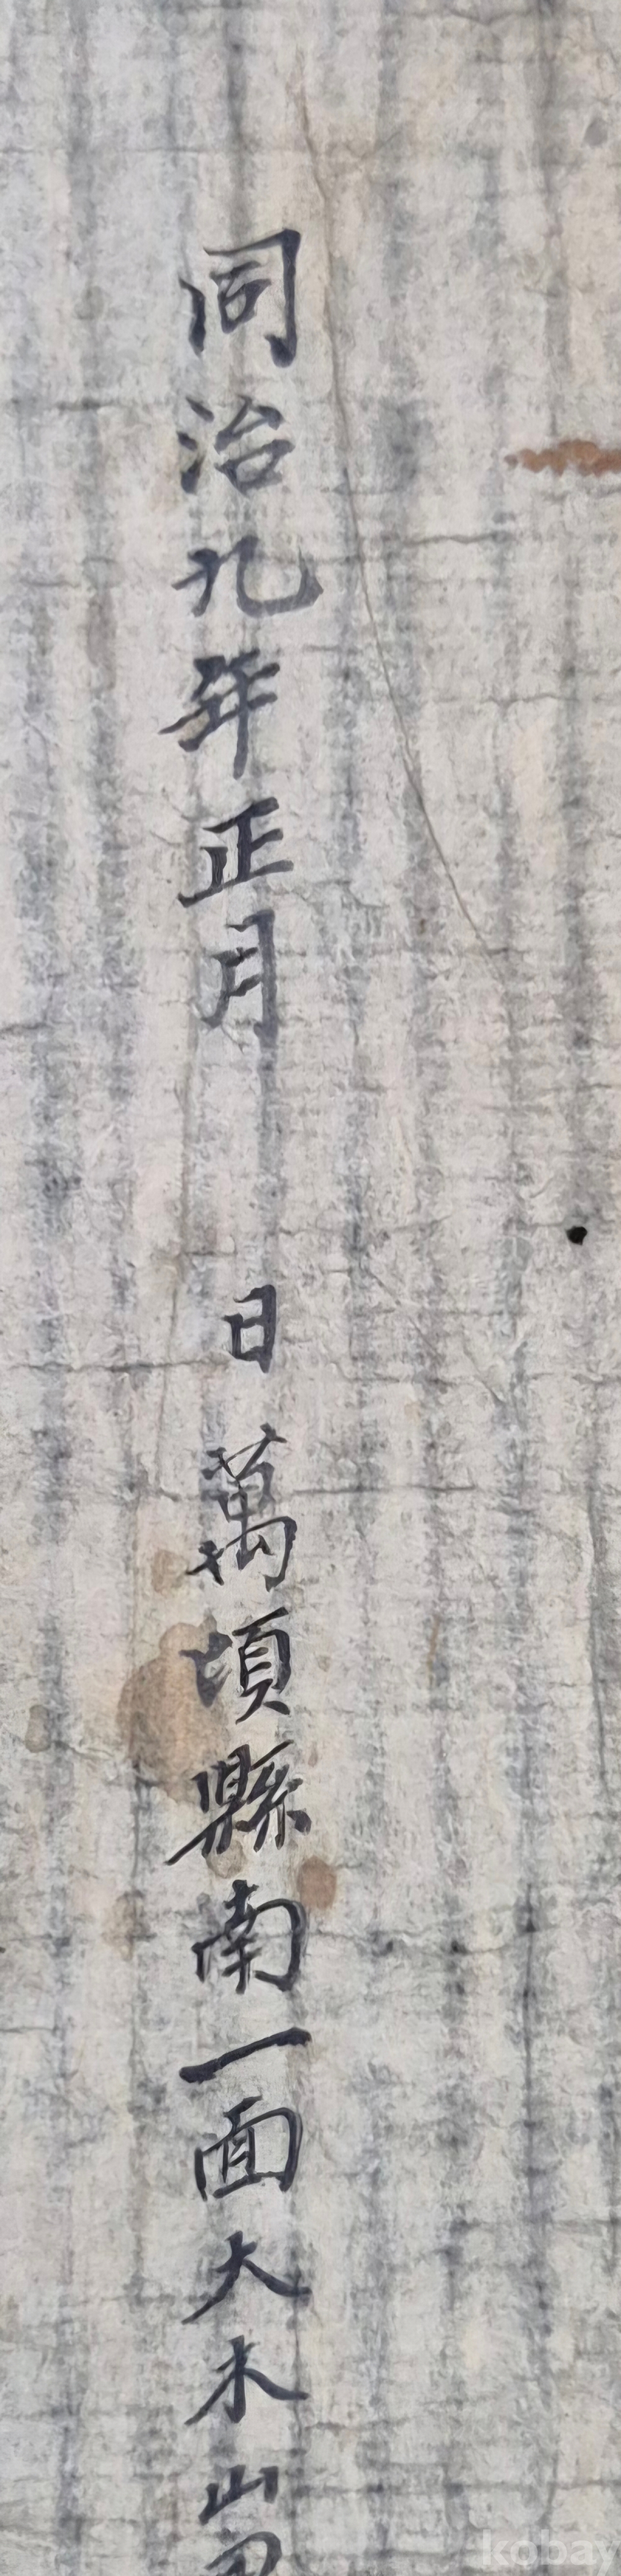 同治九年正月 日萬頃縣南一面大木山
kobay